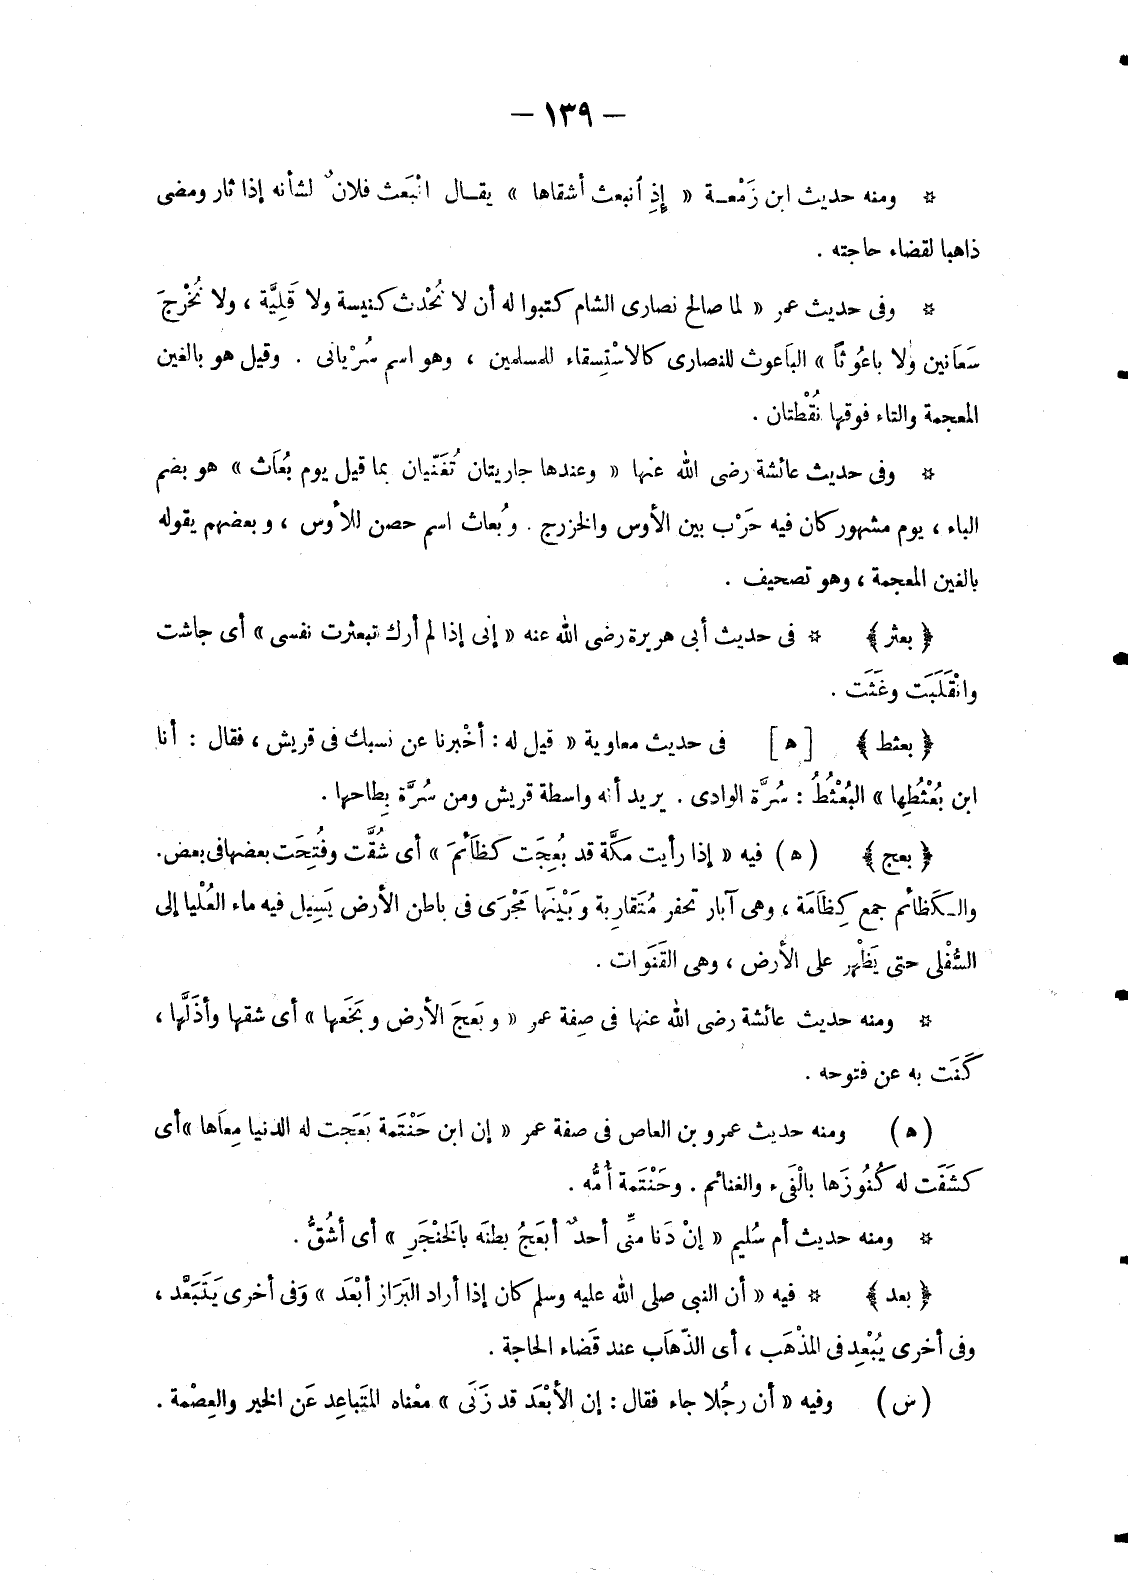 — ١٣٩ —
* ومنه حديث ابن زَمْعـة « إذِ ٱنبعث أشقاها » يقـال انْبَعَث فلانٌ لشأنه إذا ثار ومضى
ذاهبا لقضاء حاجته .
* وفى حديث عمر « لما صالح نصارى الشام كتبوا له أن لا نُحْدث كنيسة ولا قَلِيَّة ، ولا نُخْرِجَ
سَعَانين ولا باعُوثاً » البَاعوث للنصارى كالاسْتِسقاء للمسلمين ، وهو اسم سُرْيانى . وقيل هو بالغين
المعجمة والتاء فوقها نُقْطتان .
* وفى حديث عائشة رضى الله عنها « وعندها جاريتان تُغَنّيان بما قيل يوم بُعَاث » هو بضم
الباء ، يوم مشهور كان فيه حَرْب بين الأوس والخزرج . وبُعاث اسم حصن للأوس ، وبعضهم يقوله
بالغين المعجمة ، وهو تصحيف .
﴿ بعثر ﴾ * فى حديث أبى هريرة رضى الله عنه « إنى إذا لم أرك تبعثرت نفسى » أى جاشت
وانْقَلَبَت وغَثَت .
﴿ بعثط ﴾ [ ه ] فى حديث معاوية « قيل له : أخْبرنا عن نسبك فى قريش ، فقال : أنا
ابن بُعْثُطِها » البُعْثُطُ : سُرَّة الوادى . يريد أنه واسطة قريش ومن سُرَّة بِطاحها .
﴿ بعج ﴾ ( ه ) فيه « إذا رأيت مكَّة قد بُعِجَت كظَائمَ » أى شُقَّت وفُتِحَت بعضها فى بعض .
والـكَظائم جمع كِظَامَة ، وهى آبار تحفر مُتَقاربة وبَيْنَها مَجْرَى فى باطن الأرض يَسِيل فيه ماء العُلْيا إلى
السُّفْلى حتى يَظْهر على الأرض ، وهى القَنَوات .
* ومنه حديث عائشة رضى الله عنها فى صِفة عمر « وبَعَجَ الأرض وبَخَعها » أى شقها وأذَلَّها ،
كَنَت به عن فتوحه .
( ه ) ومنه حديث عمرو بن العاص فى صفة عمر « إن ابن حَنْتَمة بَعَجت له الدنيا مِعَاها » أى
كشَفَت له كُنُوزَها بالْفَىء والغنائم . وحَنْتَمة أُمُّه .
* ومنه حديث أم سُليم « إنْ دَنا منِّى أحدٌ أبعَجُ بطنَه بالْخنْجَرِ » أى أشُقُّ .
﴿ بعد ﴾ * فيه « أن النبى صلى الله عليه وسلم كان إذا أراد البَرَاز أبْعَد » وَفى أخرى يَتَبَعَّد ،
وفى أخرى يُبْعِد فى المذْهَب ، أى الذّهَاب عند قَضاء الحاجة .
( س ) وفيه « أن رجُلا جاء فقال : إن الأبْعَد قد زَنَى » معْناه المتَباعِد عَن الخير والعِصْمة .